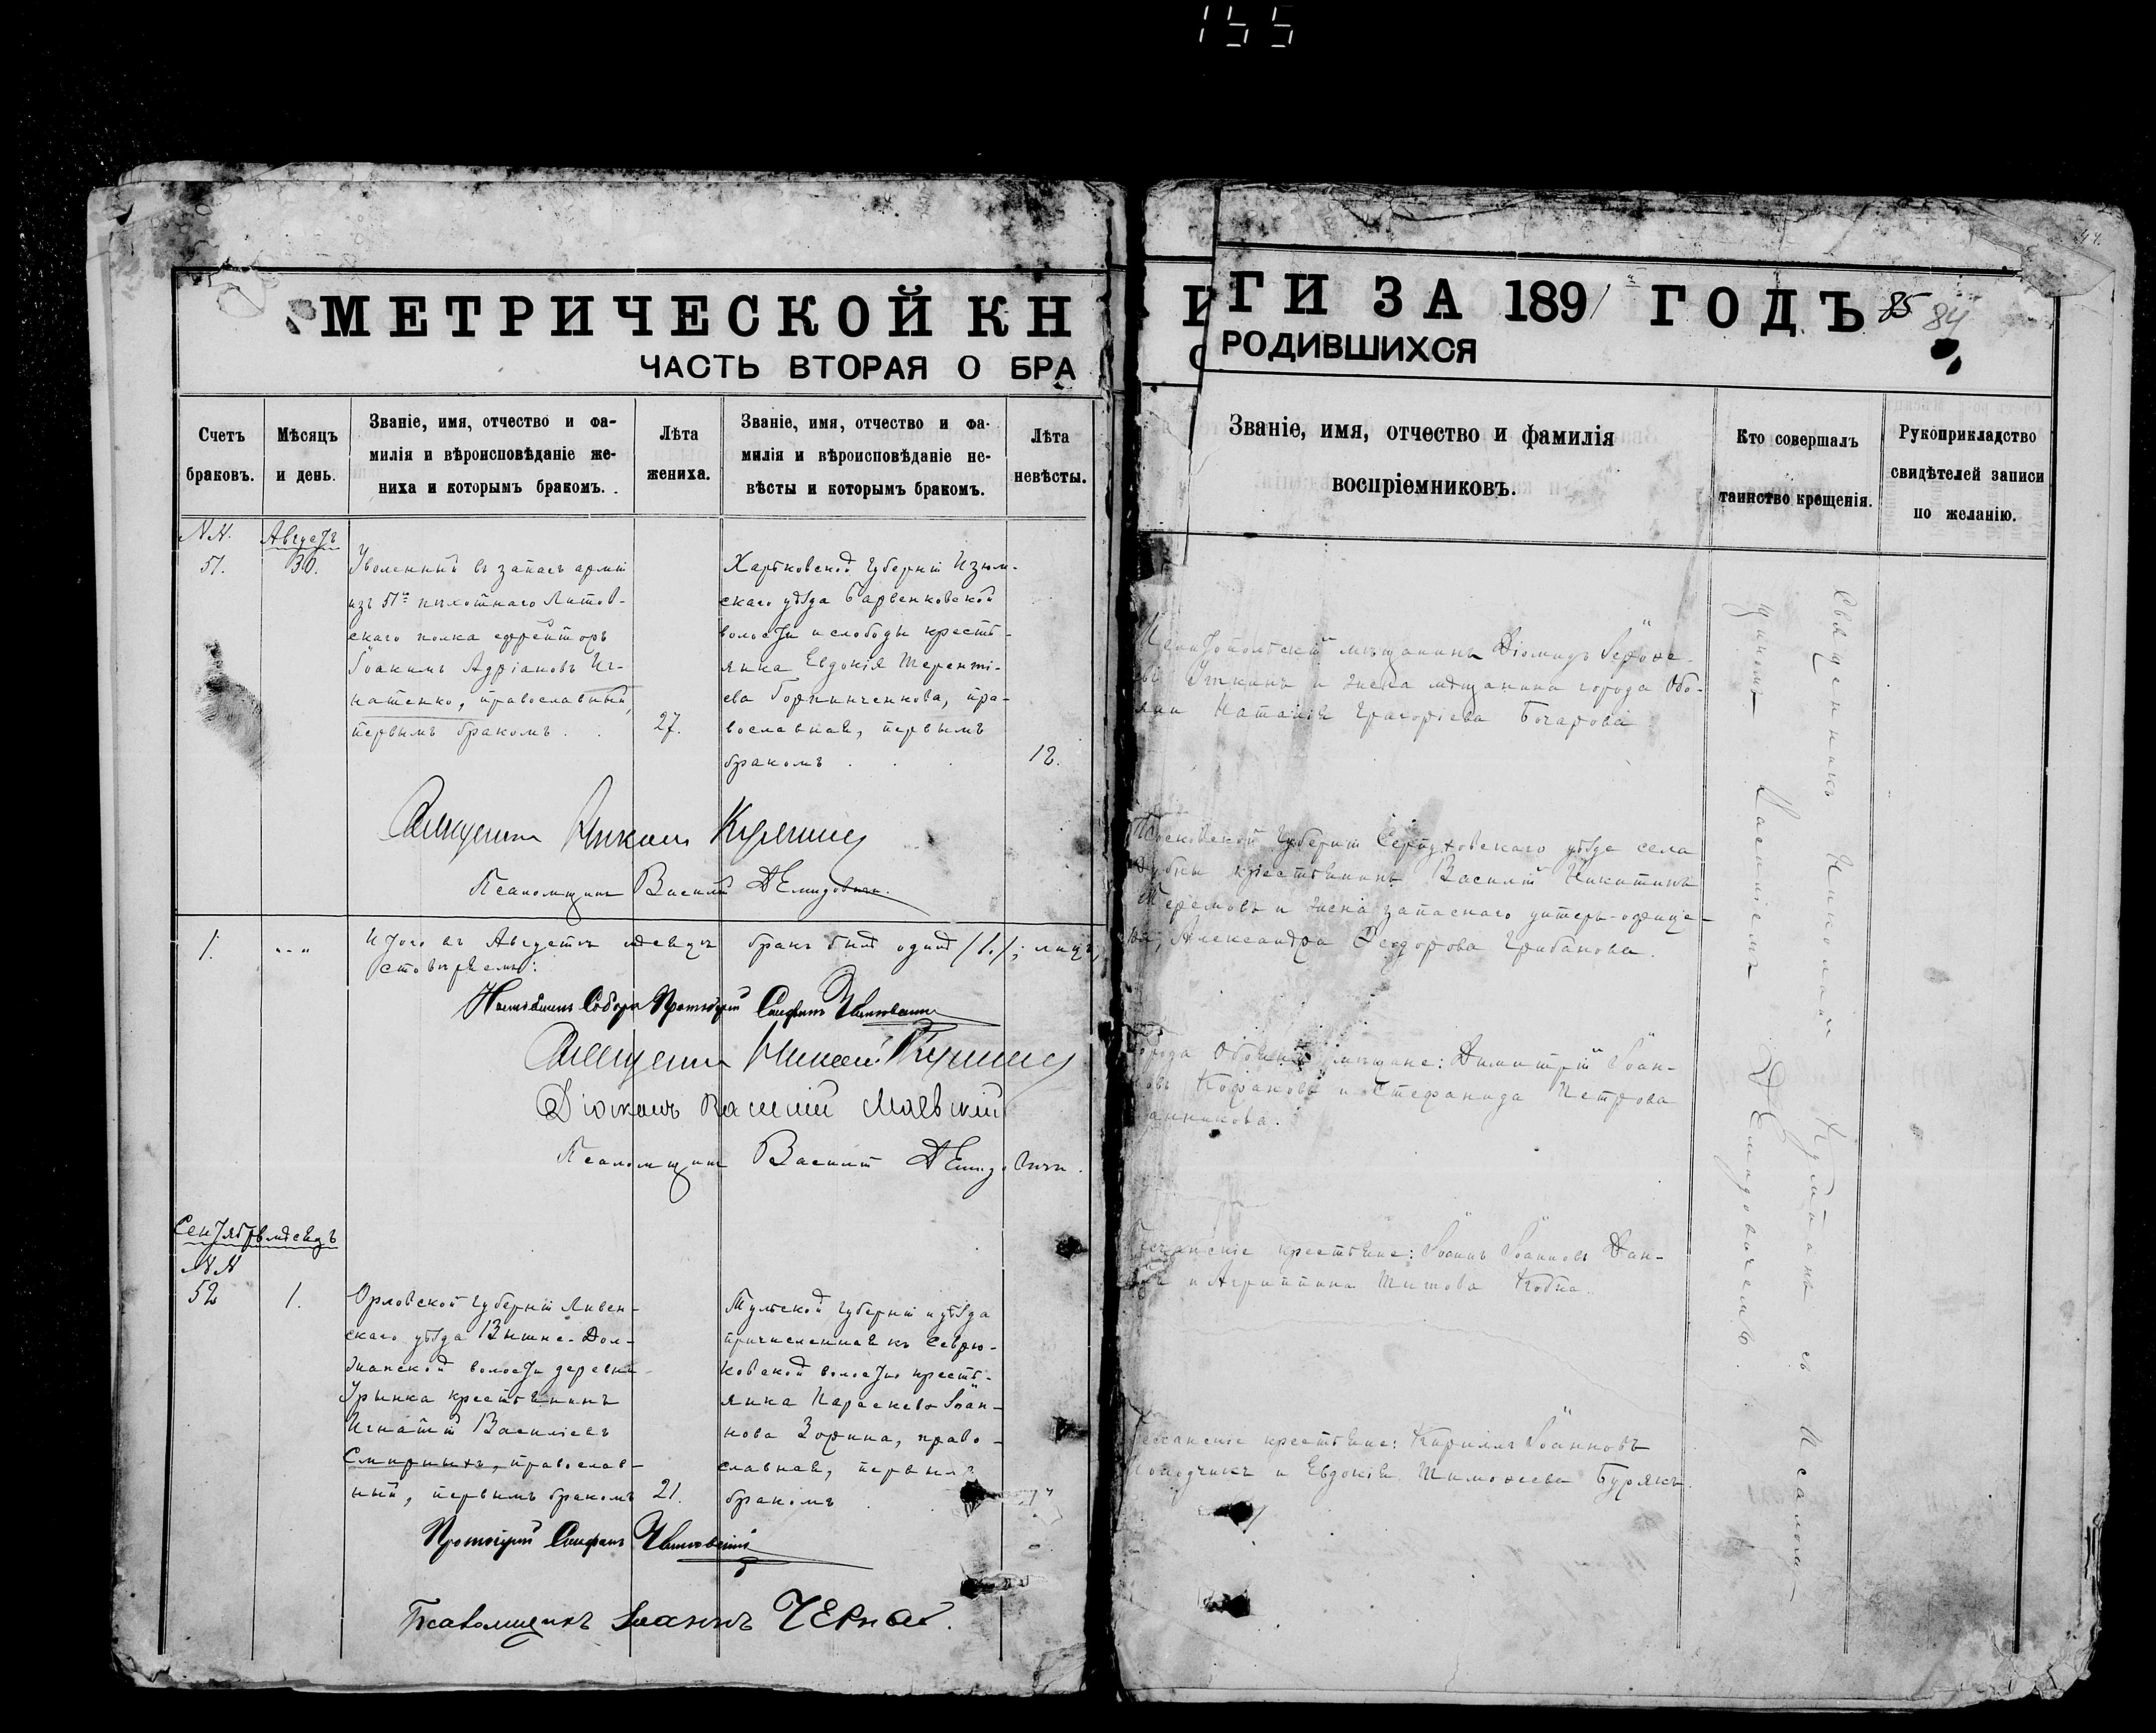 155
МЕТРИЧЕСКОЙ КН
ЧАСТЬ ВТОРАЯ О БРА
Счетъ браковъ.
Мѣсяцъ и день.
Званіе, имя, отчество и фа-
милія и вѣроисповѣданіе же-
ниха и которымъ бракомъ.
Лѣта жениха.
Званіе, имя, отчество и фа-
милія и вѣроисповѣданіе не-
вѣсты и которымъ бракомъ.
Лѣта невѣсты.
NN.
51.
Августъ
30.
Уволенный въ запасъ арміи
изъ 51го пѣхотнаго Литов-
скаго полка ефрейторъ
Іоакимъ Адріановъ Иг-
натенко, православный,
первымъ бракомъ.
27.
Харьковской губерніи Изюм-
скаго уѣзда Барвенковской
волости и слободы кресть-
янка Евдокія Теренті-
ева Горпинченкова, пра-
вославная, первымъ
бракомъ
18.
Священникъ Николай
Псаломщикъ Василій Демидовичъ.
1.
Итого въ Августѣ мѣсяцѣ бракъ былъ одинъ /1./; лицъ
Протоіерей Стефанъ
Священникъ Николай
Діаконъ Василій Маевскій
Псаломщикъ Василій Демидовичъ.
Сентябрь мѣсяцъ
NN
52
1.
Орловской губерніи Ливен-
скаго уѣзда Вышне-Дол-
жанской волости деревни
крестьянинъ
Игнатій Василіевъ
Смирныхъ, православ-
ный, первымъ бракомъ
21.
Тульской губерніи и уѣзда
причисленная къ Севрю-
ковской волости кресть-
янка Параскева Іоан-
нова Зорина, право-
славная, первымъ
бракомъ
Протоіерей Стефанъ
Псаломщикъ Іоаннъ Чернай.
И
ГИ ЗА 1891 ГОДЪ
85 84
РОДИВШИХСЯ
Званіе, имя, отчество и фамилія
воспріемниковъ.
Кто совершалъ
таинство крещенія.
Рукоприкладство
свидѣтелей записи
по желанію.
мѣщанинъ Діомидъ
Уткинъ и жена мѣщанина города Обо-
яни Наталія Григоріева Бочарова
Московской губерніи Серпуховскаго уѣзда села
крестьянинъ Василій Никитинъ
и жена запаснаго унтеръ-офице-
ра, Александра Феодорова Грибанова.
Города Обояни мѣщане: Димитрій Іоан-
новъ Кофановъ и Стефанида Петрова
крестьяне: Іоаннъ Іоанновъ Дан-
и Агриппина Титова Кобца.
крестьяне: Кириллъ Іоанновъ
и Евдокія Тимоѳеева Бурякъ.
Священникъ Николай съ Псалом-
щикомъ Василіемъ Демидовичемъ.